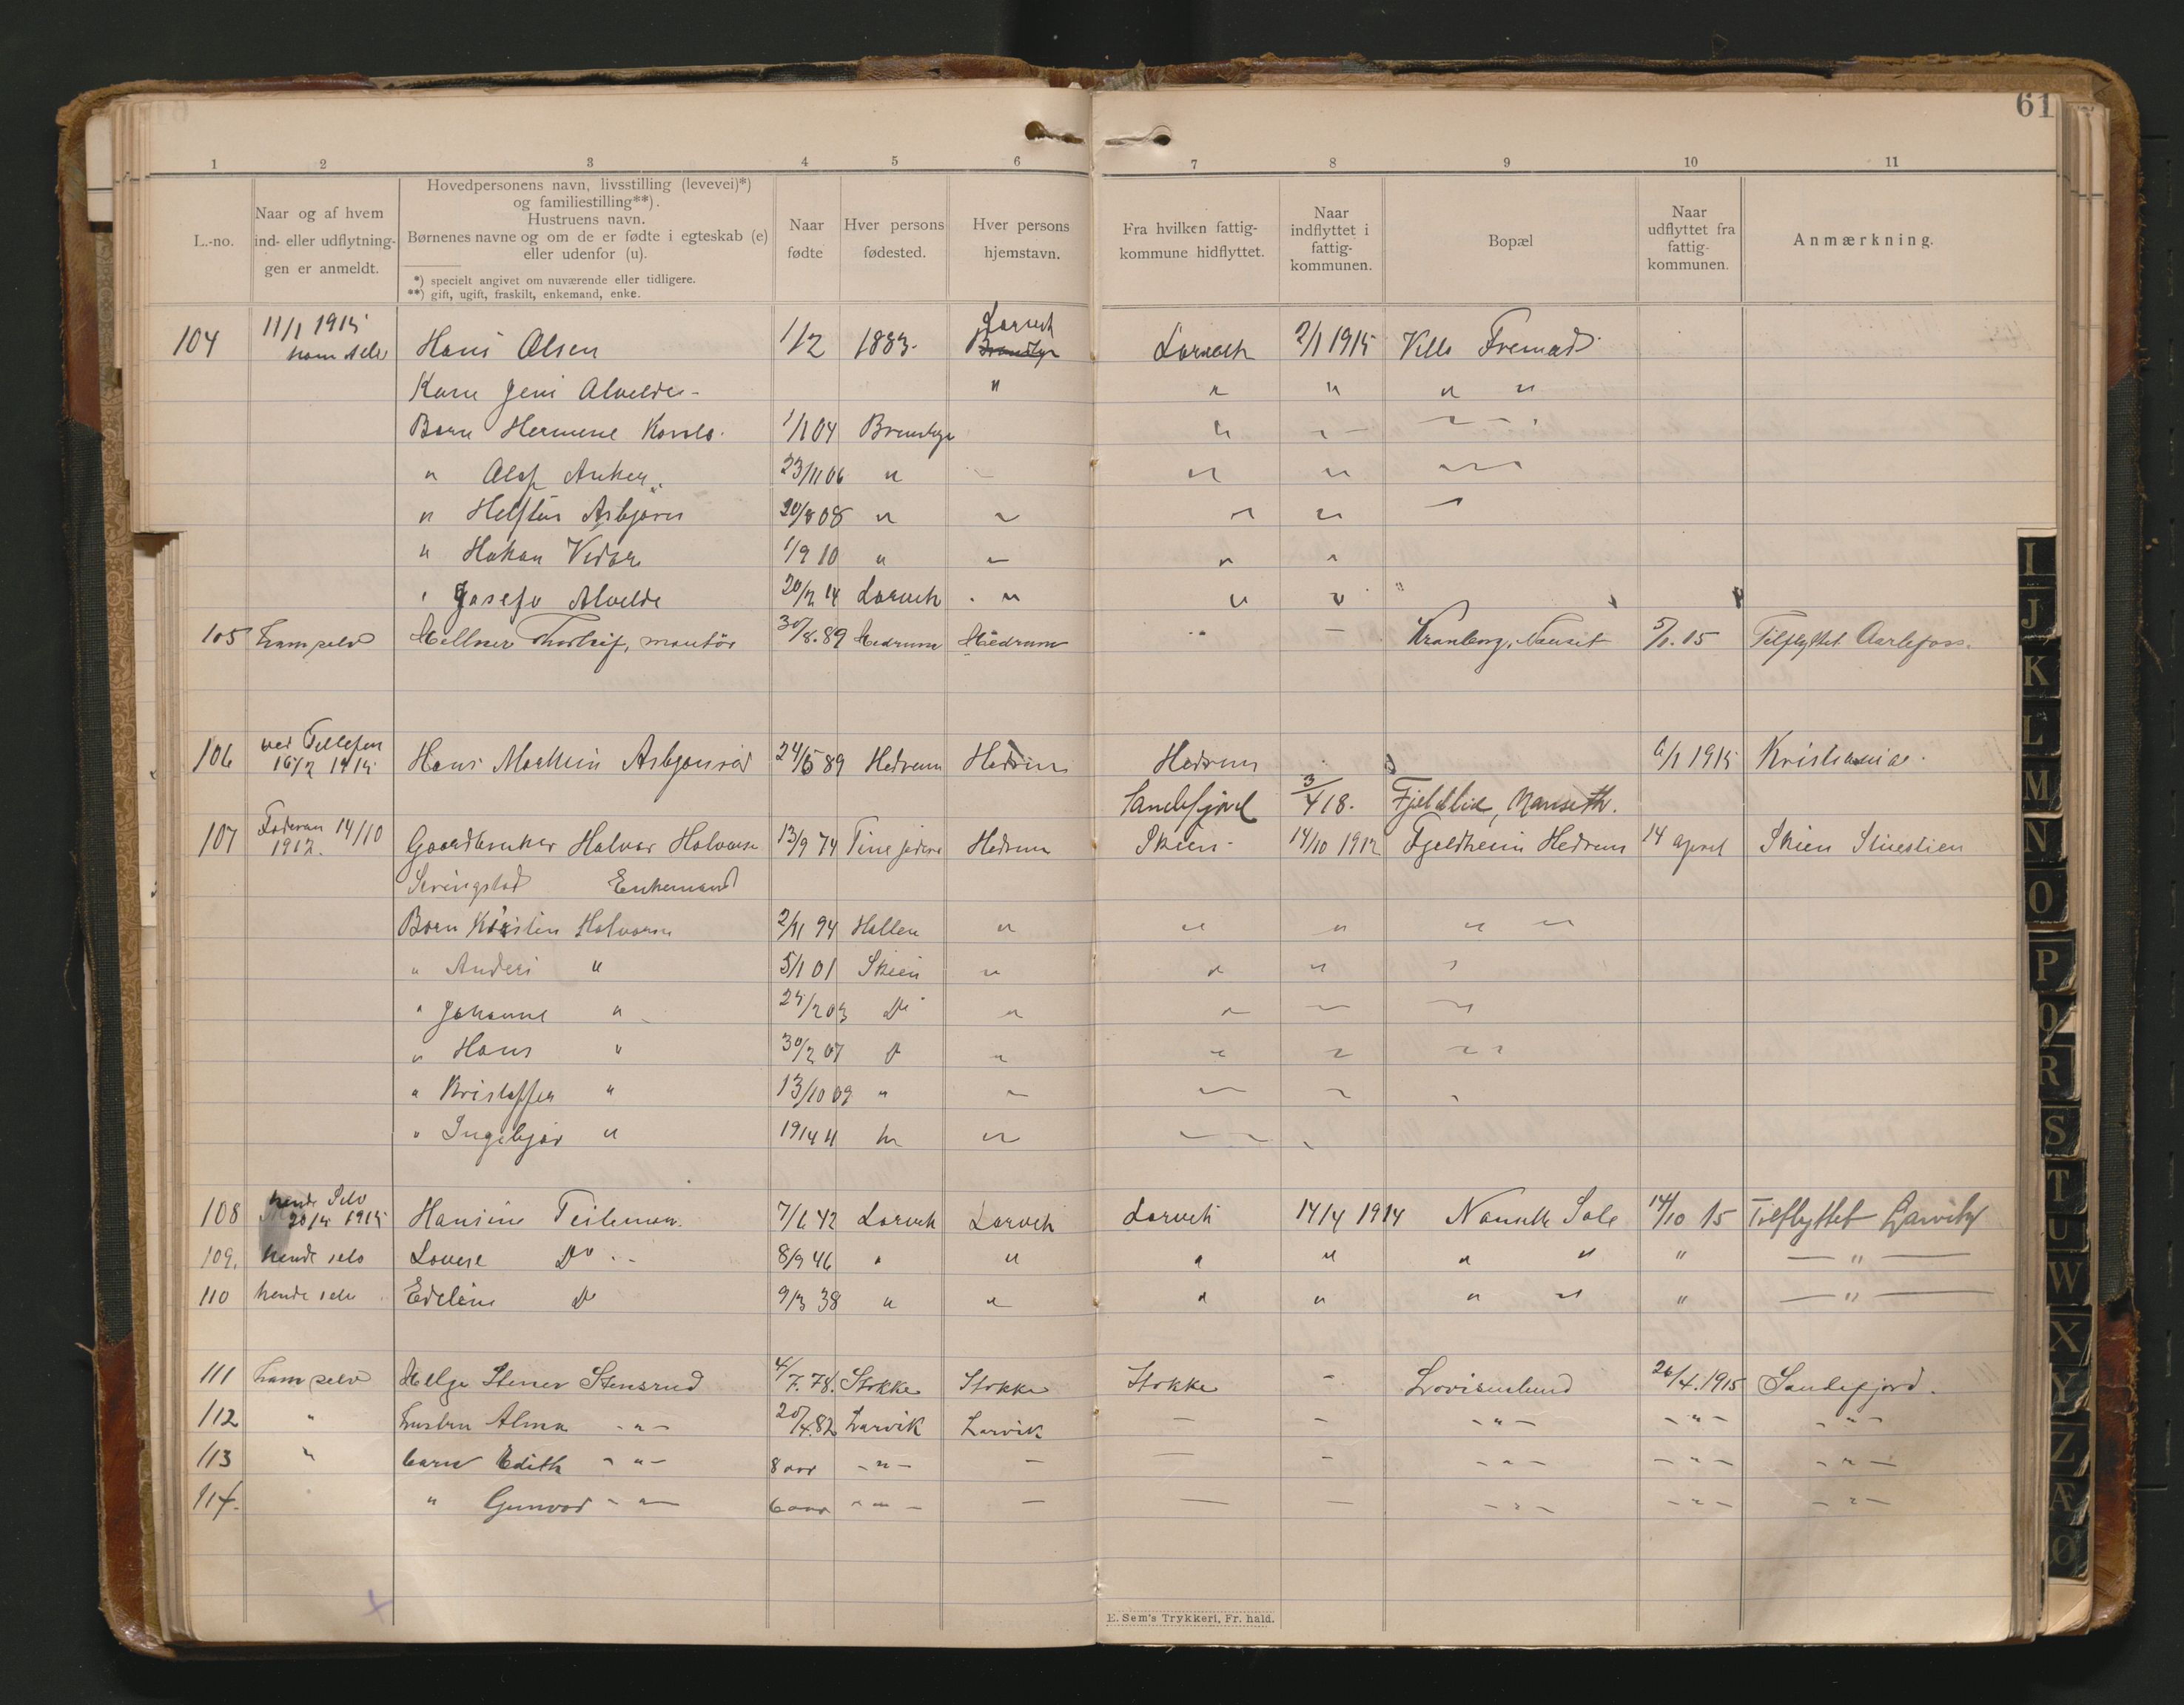 61
1 2 3 4 5 6 7 8 9 10 11
L.-no.
Naar og af hvem
ind- eller udflytnin-
gen er anmeldt.
Hovedpersonens navn, livsstilling (levevei)*)
og familiestilling**).
Hustruens navn.
Børnenes navne og om de er fødte i egteskab (e)
eller udenfor (u).
*) specielt angivet om nuværende eller tidligere.
**) gift, ugift, fraskilt, enkemand, enke.
Naar
fødte
Hver persons
fødested.
Hver persons
hjemstavn.
Fra hvilken fattig-
kommune hidflyttet.
Naar
indflyttet i
fattig-
kommunen.
Bopæl
Naar
udflyttet fra
fattig-
kommunen.
Anmærkning.
11/1 1915 Larvik
104 ham selv Hans Olsen 1/2 1883. Larvik 2/1 1915 Villa Fremad
" " " " "
Barn Hermene 1/1 04 "
" Olaf Anker 23/11 06 " " "
" Asbjørn 20/8 08 " " " "
" Hakon Vidar 1/9 10 " " " "
" Alvilde 20/2 14 Larvik " " "
105 ham selv Thorleif, montør 30/8. 89 Hedrum Hedrum Kranborg, Nanset 5/1. 15 Tilflyttet
106 ved Tellefsen
16/2 1915 Hans Asbjønrød 24/5 89 Hedrum Hedrum Hedrum 6/1 1915 Kristiania.
Sandefjord 3/4 18. Fjeldlid, Nanseth.
107 14/10
1912. Gaardbruker Halvor Halvorsen 13/9 74 Hedrum Skien 14/10 1912 Fjeldheim Hedrum 14 april Skien
Enkemand
Barn Kirstin Halvorsen 2/11 94 " " " " "
" Anders " 5/1 01 Skien " " "
" Johanne " 24/2 03 Do " "
" Hans " 30/2 07 Do " "
" Kristoffer " 13/10 09 "
" Ingebjør " 1914 "
108 hende Selv
20/4 1915 Hansine 7/1 42 Larvik Larvik Larvik 14/4 1914 Nanseth 14/10 15 Tilflyttet Larvik
109. hende selv Lovise Do 8/9 46 " " " " " " " — " —
110 hende selv Do 9/3 38 " " " " " " " — " —
111 ham selv Helge Stener Stensrud 4/7. 78. Stokke Stokke Stokke - Lovisenlund 26/4. 1915 Sandefjord.
112 " hustru Alma - " - 20/4. 82 Larvik Larvik — - - " - - " - - " -
113 " barn Edith - " - 8 aar - " - — — - - " - - " - - " -
114. " Gunvor - " - 6 aar - " - — — — - " - - " - - " -
E. Sem's Trykkeri, Fr. hald.
I
J
K
L
M
N
O
P
Q
R
S
T
U
W
X
Y
Z
Æ
Ø